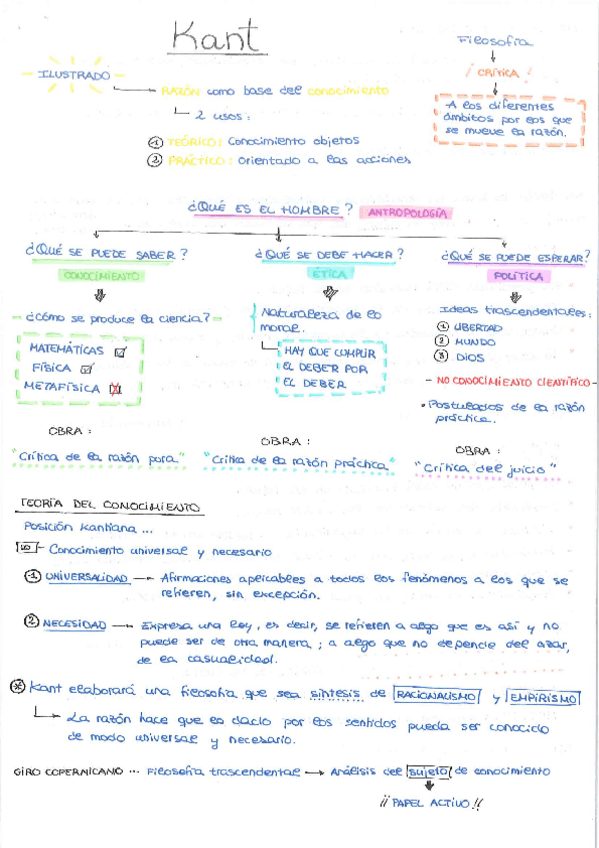 Kant
Filosofía
ILUSTRADO
¡CRÍTICA!
RAZÓN como base del conocimiento
A los diferentes
ámbitos por los que
se mueve la razón.
2 usos:
① TEÓRICO: Conocimiento objetos
② PRÁCTICO: Orientado a las acciones
¿QUÉ ES EL HOMBRE? ANTROPOLOGÍA
¿QUÉ SE PUEDE SABER?
CONOCIMIENTO
¿Cómo se produce la ciencia?
MATEMÁTICAS
FÍSICA
METAFÍSICA
OBRA:
"Crítica de la razón pura"
¿QUÉ SE DEBE HACER?
ÉTICA
Naturaleza de lo
moral.
HAY QUE CUMPLIR
EL DEBER POR
EL DEBER
OBRA:
"Crítica de la razón práctica"
¿QUÉ SE PUEDE ESPERAR?
POLÍTICA
Ideas trascendentales:
① LIBERTAD
② MUNDO
③ DIOS
- NO CONOCIMIENTO CIENTÍFICO -
• Postulados de la razón
práctica.
OBRA:
"Crítica del juicio"
TEORÍA DEL CONOCIMIENTO
Posición Kantiana ...
Conocimiento universal y necesario
① UNIVERSALIDAD → Afirmaciones aplicables a todos los fenómenos a los que se
refieren, sin excepción.
② NECESIDAD → Expresa una ley, es decir, se refieren a algo que es así y no
puede ser de otra manera; a algo que no depende del azar,
de la casualidad.
* Kant elaborará una filosofía que sea síntesis de RACIONALISMO y EMPIRISMO
La razón hace que lo dado por los sentidos pueda ser conocido
de modo universal y necesario.
GIRO COPERNICANO ... Filosofía trascendental → Análisis del sujeto de conocimiento
¡¡PAPEL ACTIVO!!